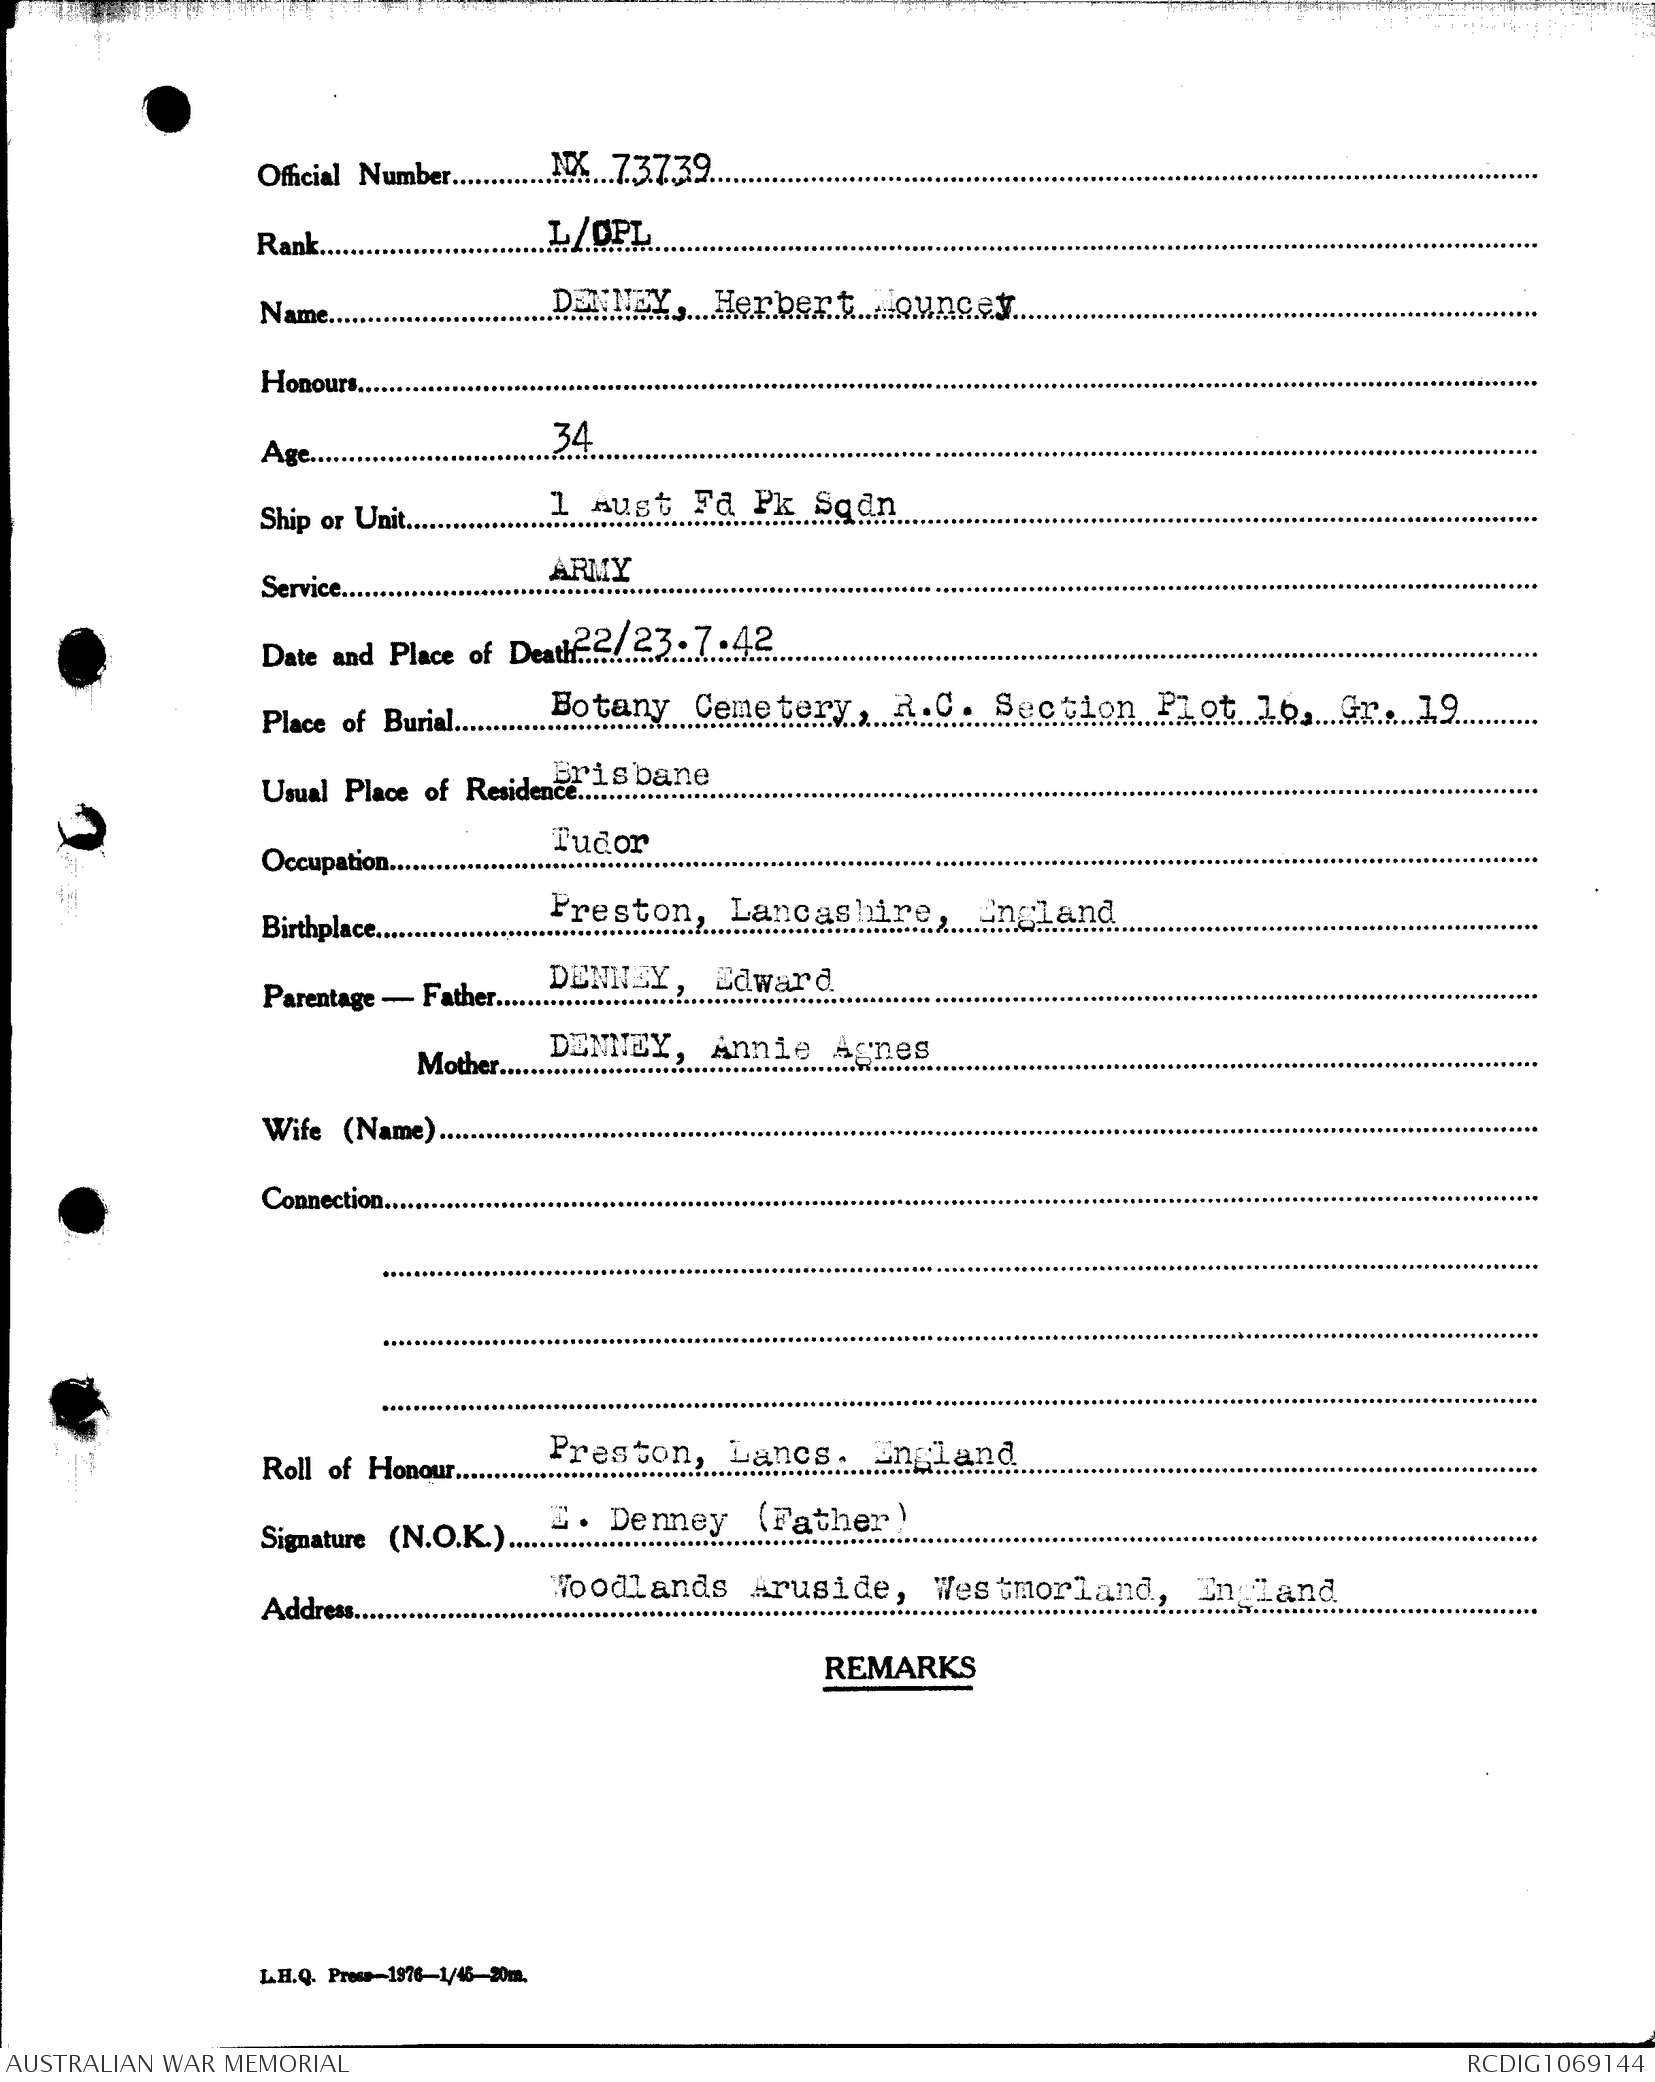 Official Number NX 73739
Rank L/CPL
Name DENNEY, Herbert Mouncey
Honours
Age 34
Ship or Unit 1 Aust Fd Pk Sqdn
Service ARMY
Date and Place of Death 22/23.7.42
Place of Burial Botany Cemetery, R.C. Section Plot 16, Gr. 19
Usual Place of Residence Brisbane
Occupation Tudor
Birthplace Preston, Lancashire, England
Parentage — Father DENNEY, Edward
Mother DENNEY, Annie Agnes
Wife (Name)
Connection
Roll of Honour Preston, Lancs. England
Signature (N.O.K.) E. Denney (Father)
Address Woodlands Aruside, Westmorland, England
REMARKS
L.H.Q. Press—1976—1/45—20m.
AUSTRALIAN WAR MEMORIAL
RCDIG1069144